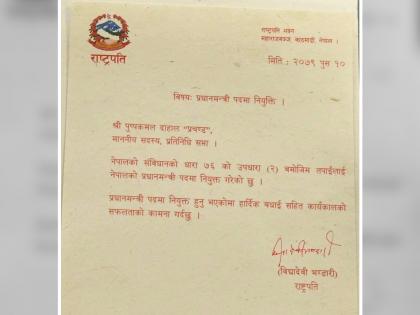 राष्ट्रपति
राष्ट्रपति भवन
महाराजगञ्ज, काठमाडौं, नेपाल ।
मिति : २०७९ पुस १०
विषयः प्रधानमन्त्री पदमा नियुक्ति ।
श्री पुष्पकमल दाहाल "प्रचण्ड",
माननीय सदस्य, प्रतिनिधि सभा ।
नेपालको संविधानको धारा ७६ को उपधारा (२) बमोजिम तपाईंलाई
नेपालको प्रधानमन्त्री पदमा नियुक्त गरेको छु ।
प्रधानमन्त्री पदमा नियुक्त हुनु भएकोमा हार्दिक बधाई सहित कार्यकालको
सफलताको कामना गर्दछु ।
(विद्यादेवी भण्डारी)
राष्ट्रपति